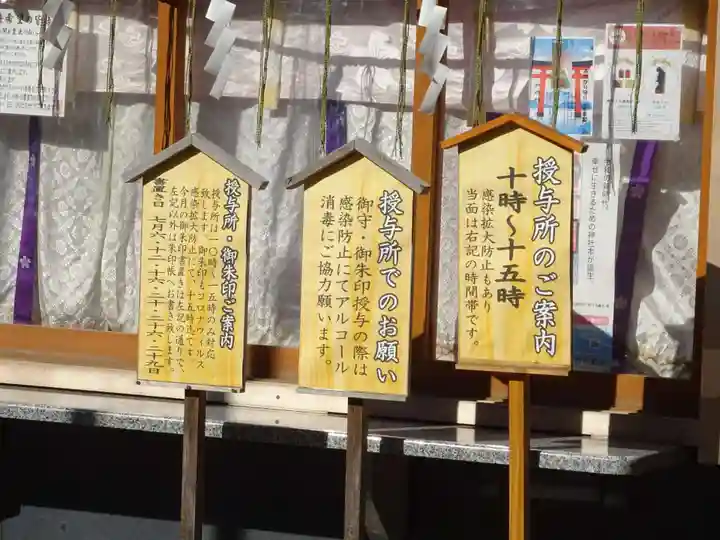 授与所のご案内
十時～十五時
感染拡大防止もあり
当面は右記の時間帯です。
授与所でのお願い
御守・御朱印授与の際は
感染防止にてアルコール
消毒にご協力願います。
授与所・御朱印ご案内
授与所は一〇時～一五時のみ対応
致します。御朱印もコロナウィルス
感染拡大防止にて、十五時迄です
今月の御朱印書置きは左記の通りで、
左記以外は朱印帳へお書き致します。
幸せに生きるための神社本が誕生